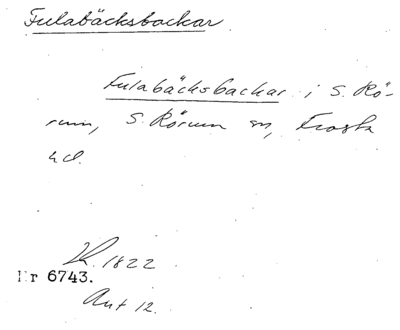 Fulabäcksbackar
Fulabäcksbackar i S. Rö-
rum, S. Rörum sn, Frosta
hd.
K. 1822
Nr 6743.
Ant 12.